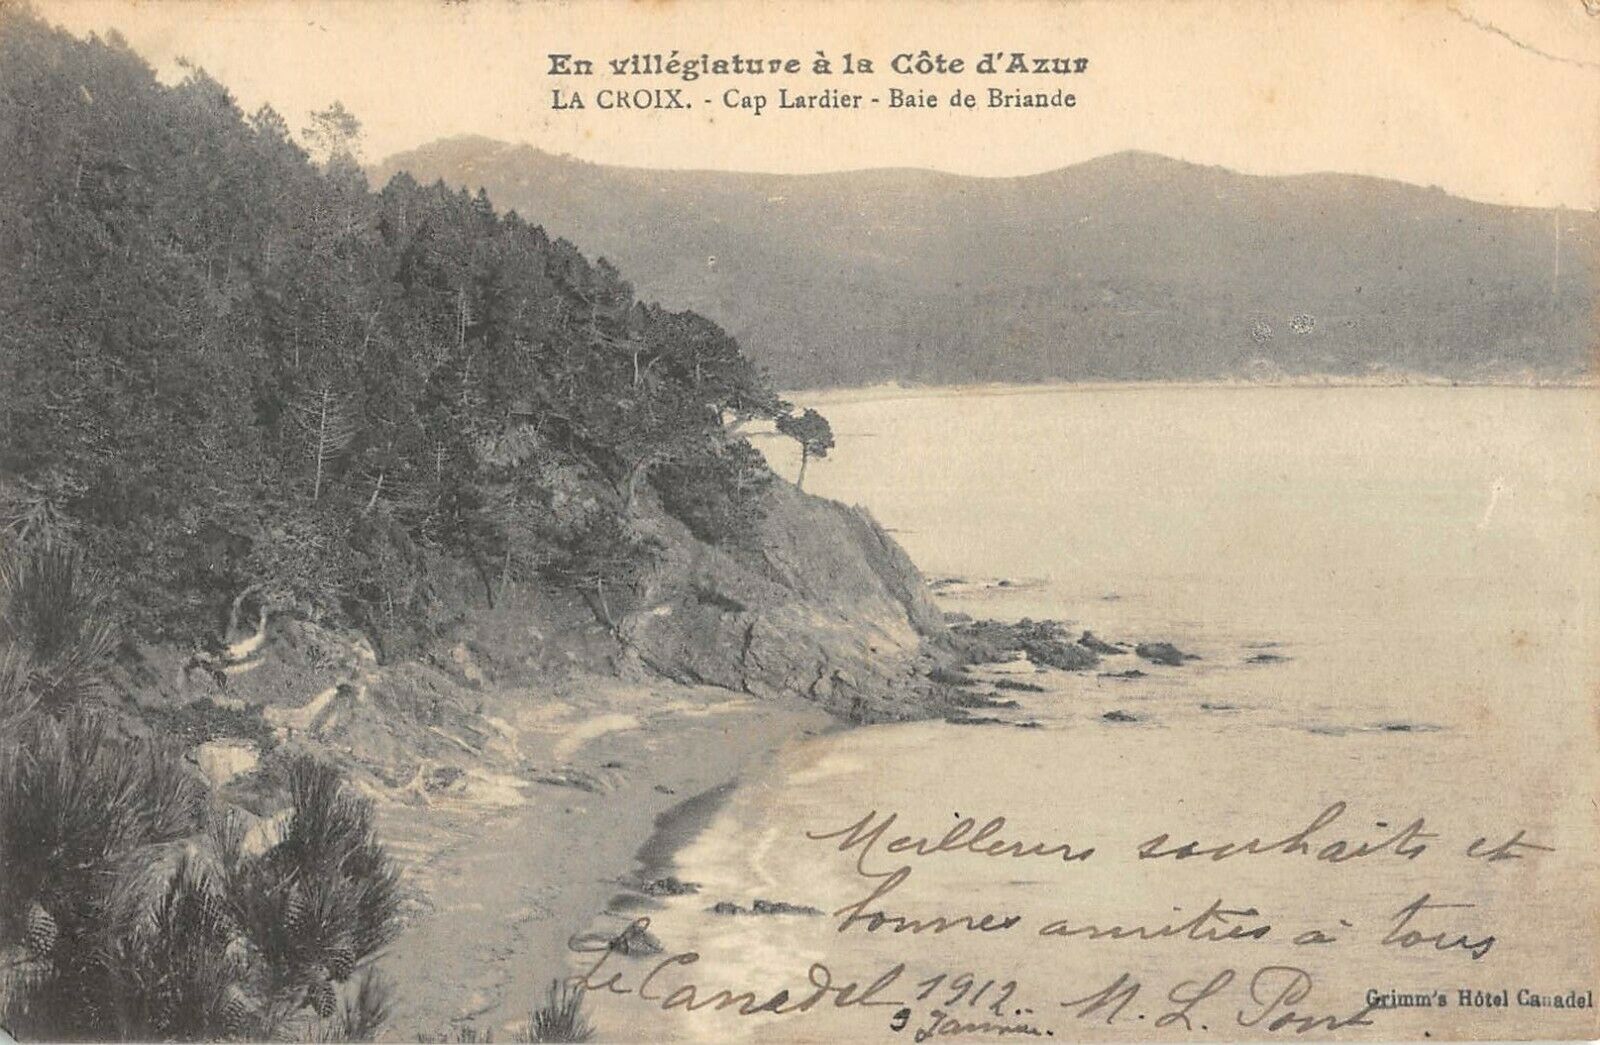 En villégiature à la Côte d'Azur
LA CROIX. - Cap Lardier - Baie de Briande
Meilleurs souhaits et
bonnes amitiés à tous
Le Canadel 1912 M. L. Pont
9 Janvier.
Grimm's Hôtel Canadel